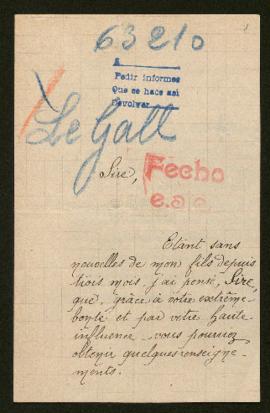 63210
A
Pedir informes
Que se hace así
Devolver
Le Gall
Sire,
Fecho
Etant sans
nouvelles de mon fils depuis
trois mois j'ai pensé, Sire,
que, grâce à votre extrême
bonté et par votre haute
influence vous pourriez
obtenir quelques renseigne-
ments.